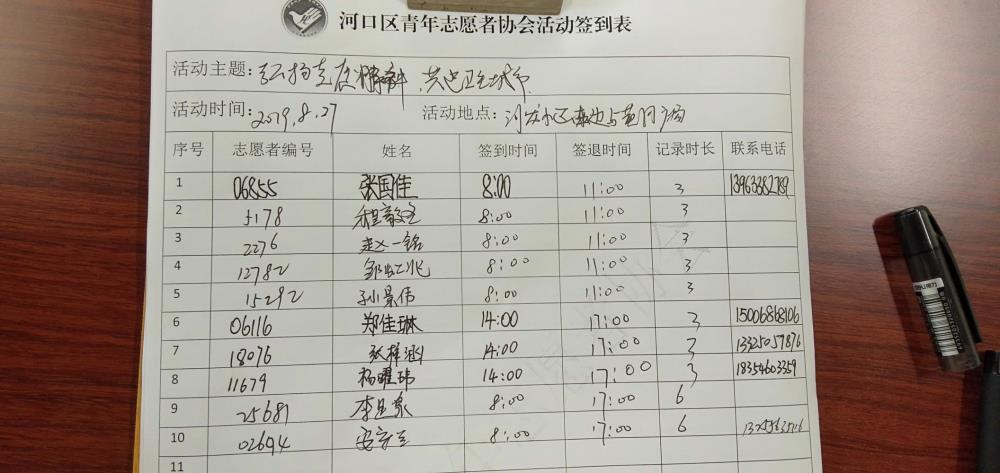 河口区青年志愿者协会活动签到表
活动主题: 弘扬志愿精神 共建卫生城市
活动时间: 2019.8.27 活动地点: 河安小区南边与黄河广场
序号 志愿者编号 姓名 签到时间 签退时间 记录时长 联系电话
1 06855 张国佳 8:00 11:00 3 13963382789
2 5178 程毅 8:00 11:00 3
3 2276 赵一铭 8:00 11:00 3
4 12782 邹虹兆 8:00 11:00 3
5 15292 孙景伟 8:00 11:00 3
6 06116 郑佳琳 14:00 17:00 3 15006868106
7 18076 张梓涵 14:00 17:00 3 13325057876
8 11679 杨曜玮 14:00 17:00 3 18354603359
9 25681 李 家 8:00 17:00 6
10 02694 安 8:00 17:00 6
11